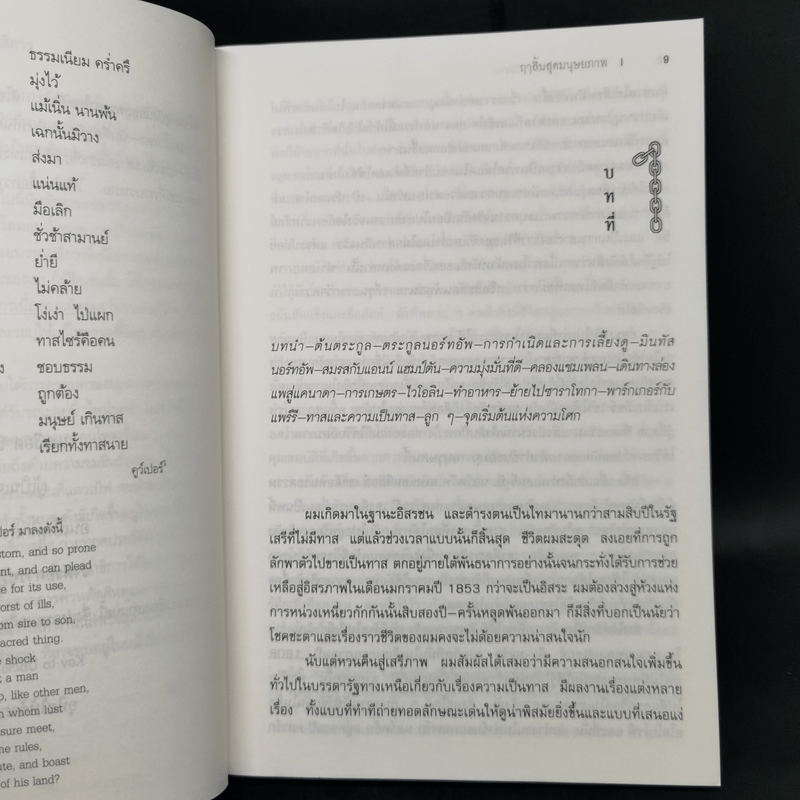 ธรรมเนียม คร่ำครึ
มุ่งไว้
แม้เนิ่น นานพ้น
เฉกนั้นมิวาง
ส่งมา
แน่นแท้
มือเลิก
ชั่วช้าสามานย์
ย่ำยี
ไม่คล้าย
โง่เง่า ไป่แผก
ทาสไซร้คือคน
ชอบธรรม
ถูกต้อง
มนุษย์ เกินทาส
เรียกทั้งทาสนาย
คูว์เปอร์¹
ปอร์ มาลงดังนี้
stom, and so prone
nt, and can plead
e for its use,
orst of ills,
om sire to son,
sacred thing.
e shock
t a man
o, like other men,
n whom lust
sure meet,
ne rules,
ute, and boast
of his land?
ฤๅสิ้นสุดมนุษยภาพ | 9
บ
ท
ที่
บทนำ—ต้นตระกูล—ตระกูลนอร์ทอัพ—การกำเนิดและการเลี้ยงดู—มินทัส
นอร์ทอัพ—สมรสกับแอนน์ แฮมป์ตัน—ความมุ่งมั่นที่ดี—คลองแชมเพลน—เดินทางล่อง
แพสู่แคนาดา—การเกษตร—ไวโอลิน—ทำอาหาร—ย้ายไปซาราโทกา—พาร์กเกอร์กับ
แพร์รี—ทาสและความเป็นทาส—ลูก ๆ—จุดเริ่มต้นแห่งความโศก
ผมเกิดมาในฐานะอิสรชน และดำรงตนเป็นไทมานานกว่าสามสิบปีในรัฐ
เสรีที่ไม่มีทาส แต่แล้วช่วงเวลาแบบนั้นก็สิ้นสุด ชีวิตผมสะดุด ลงเอยที่การถูก
ลักพาตัวไปขายเป็นทาส ตกอยู่ภายใต้พันธนาการอย่างนั้นจนกระทั่งได้รับการช่วย
เหลือสู่อิสรภาพในเดือนมกราคมปี 1853 กว่าจะเป็นอิสระ ผมต้องล่วงสู่ห้วงแห่ง
การหน่วงเหนี่ยวกักกันนั้นสิบสองปี—ครั้นหลุดพ้นออกมา ก็มีสิ่งที่บอกเป็นนัยว่า
โชคชะตาและเรื่องราวชีวิตของผมคงจะไม่ด้อยความน่าสนใจนัก
นับแต่หวนคืนสู่เสรีภาพ ผมสัมผัสได้เสมอว่ามีความสนอกสนใจเพิ่มขึ้น
ทั่วไปในบรรดารัฐทางเหนือเกี่ยวกับเรื่องความเป็นทาส มีผลงานเรื่องแต่งหลาย
เรื่อง ทั้งแบบที่ทำทีถ่ายทอดลักษณะเด่นให้ดูน่าพิสมัยยิ่งขึ้นและแบบที่เสนอแง่